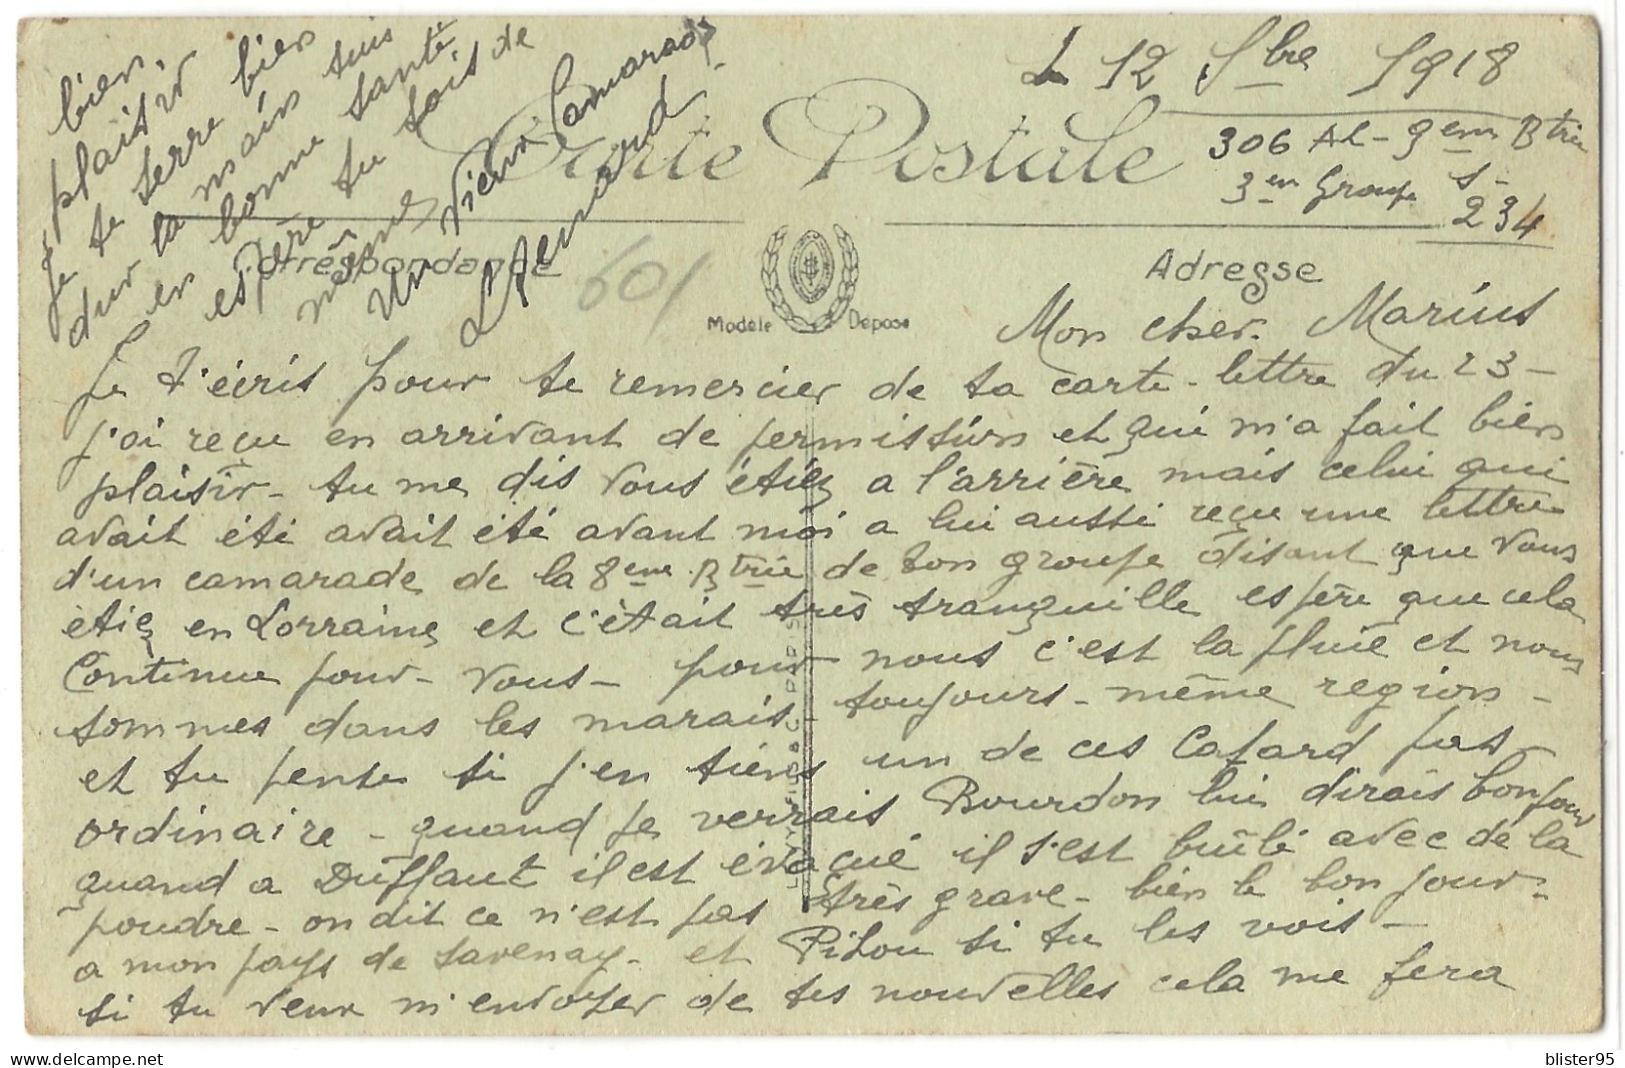 L 12 Sbre 1918
306 AL - 9em Btrie
3em Groupe S -
234
Carte Postale
Correspondance
Adresse
Modèle Déposé
601
Mon cher Marius
Je t'écris pour te remercier de ta carte-lettre du 23 -
j'ai reçu en arrivant de permissiírn et qui m'a fait bien
plaisir - tu me dis vous étiez a l'arrière mais celui qui
avait été avait été avant moi a lui aussi reçu une lettre
d'un camarade de la 8eme Btrie de ton groupe disant que vous
étiez en Lorraine et c'était très tranquille espère que cela
Continue pour - vous - pour nous c'est la pluie et nous
sommes dans les marais - toujours - même region -
et tu pense si j'en tiens un de ces Cafard pas
ordinaire - quand je verrais Bourdon lui dirais bonjour
quand a Duffaut il est évacué il s'est brûlé avec de la
poudre - on dit ce n'est pas très grave - bien le bonjour -
a mon pays de Savenay - et Pitou si tu les vois -
si tu veux m'envoyer de tes nouvelles cela me fera
bien plaisir
Je te serre bien
dur la main suis
en bonne santé
espère tu sois de
même
Un Vieux Camarade